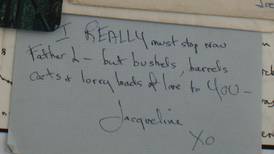 I REALLY must stop now
Father L – but bushels, barrels
carts & lorry loads of love to YOU –
Jacqueline
XO